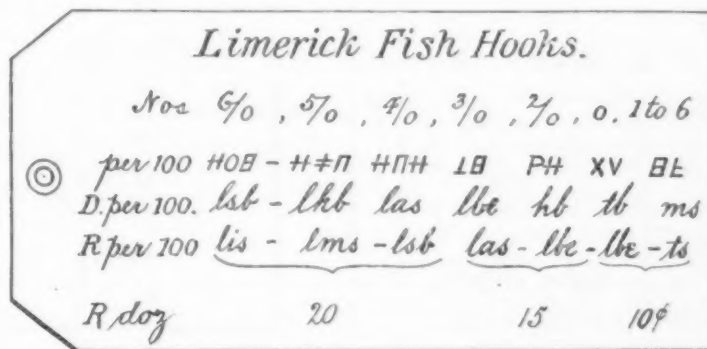 Limerick Fish Hooks.
Nos 6/0 , 5/0 , 4/0 , 3/0 , 2/0 , 0. 1 to 6
per 100
D. per 100. lsb - lhb las lbe hb tb ms
R per 100 lis - lms - lsb las - lbe - lbe - ts
R doz 20 15 10¢